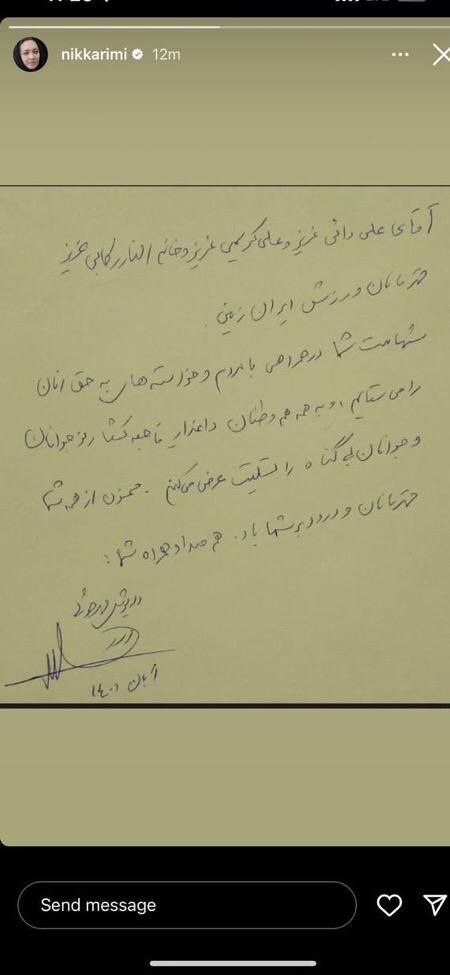 nikkarimi 12m
آقای علی دائی عزیز و علی کریمی عزیز و خانم الناز رکابی عزیز
قهرمانان ورزش ایران زمین.
شهامت شما در همراهی با مردم و خواسته های به حق آنان
را می ستایم، و به همه هم وطنان داغدار فاجعه کشتار نوجوانان
و جوانان بی گناه را تسلیت عرض می کنم. ممنون از همه شما
قهرمانان و درود بر شما باد. هم صدا و همراه شما:
داریوش مهرجوئی
آبان ۱۴۰۱
Send message